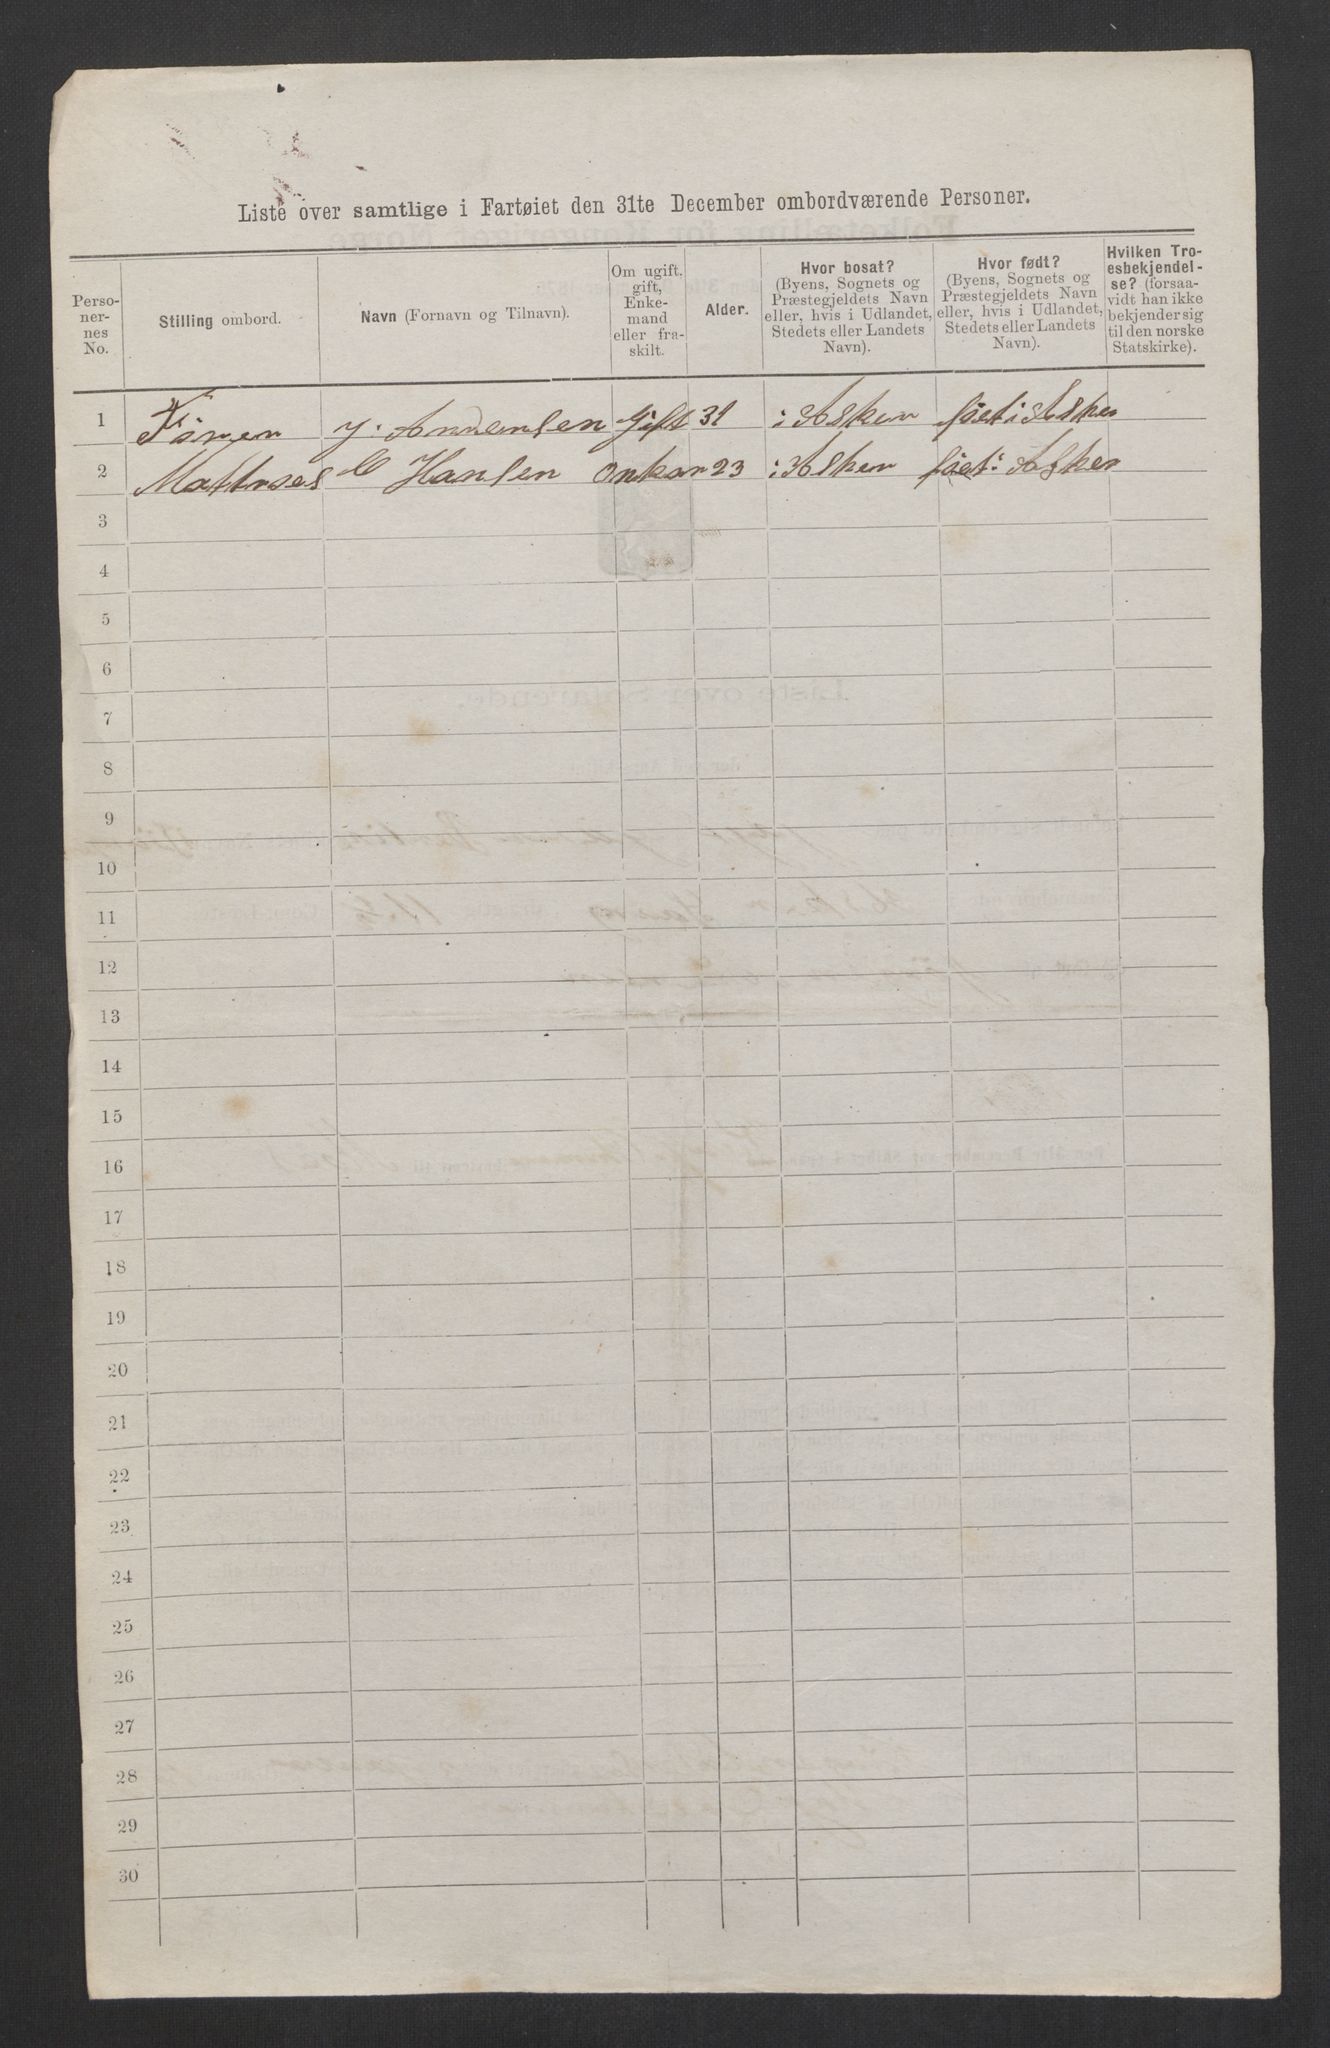 Liste over samtlige i Fartøiet den 31te December ombordværende Personer.
Personernes No.
Stilling ombord.
Navn (Fornavn og Tilnavn).
Om ugift, gift, Enkemand eller fraskilt.
Alder.
Hvor bosat? (Byens, Sognets og Præstegjeldets Navn eller, hvis i Udlandet, Stedets eller Landets Navn).
Hvor født? (Byens, Sognets og Præstegjeldets Navn eller, hvis i Udlandet, Stedets eller Landets Navn).
Hvilken Troesbekjendelse? (forsaavidt han ikke bekjender sig til den norske Statskirke).
1 J. Andersen Gift 31 i Asker föet i Asker
2 Matroses C Hansen Onkar 23 i Asker föet i Asker
3
4
5
6
7
8
9
10
11
12
13
14
15
16
17
18
19
20
21
22
23
24
25
26
27
28
29
30